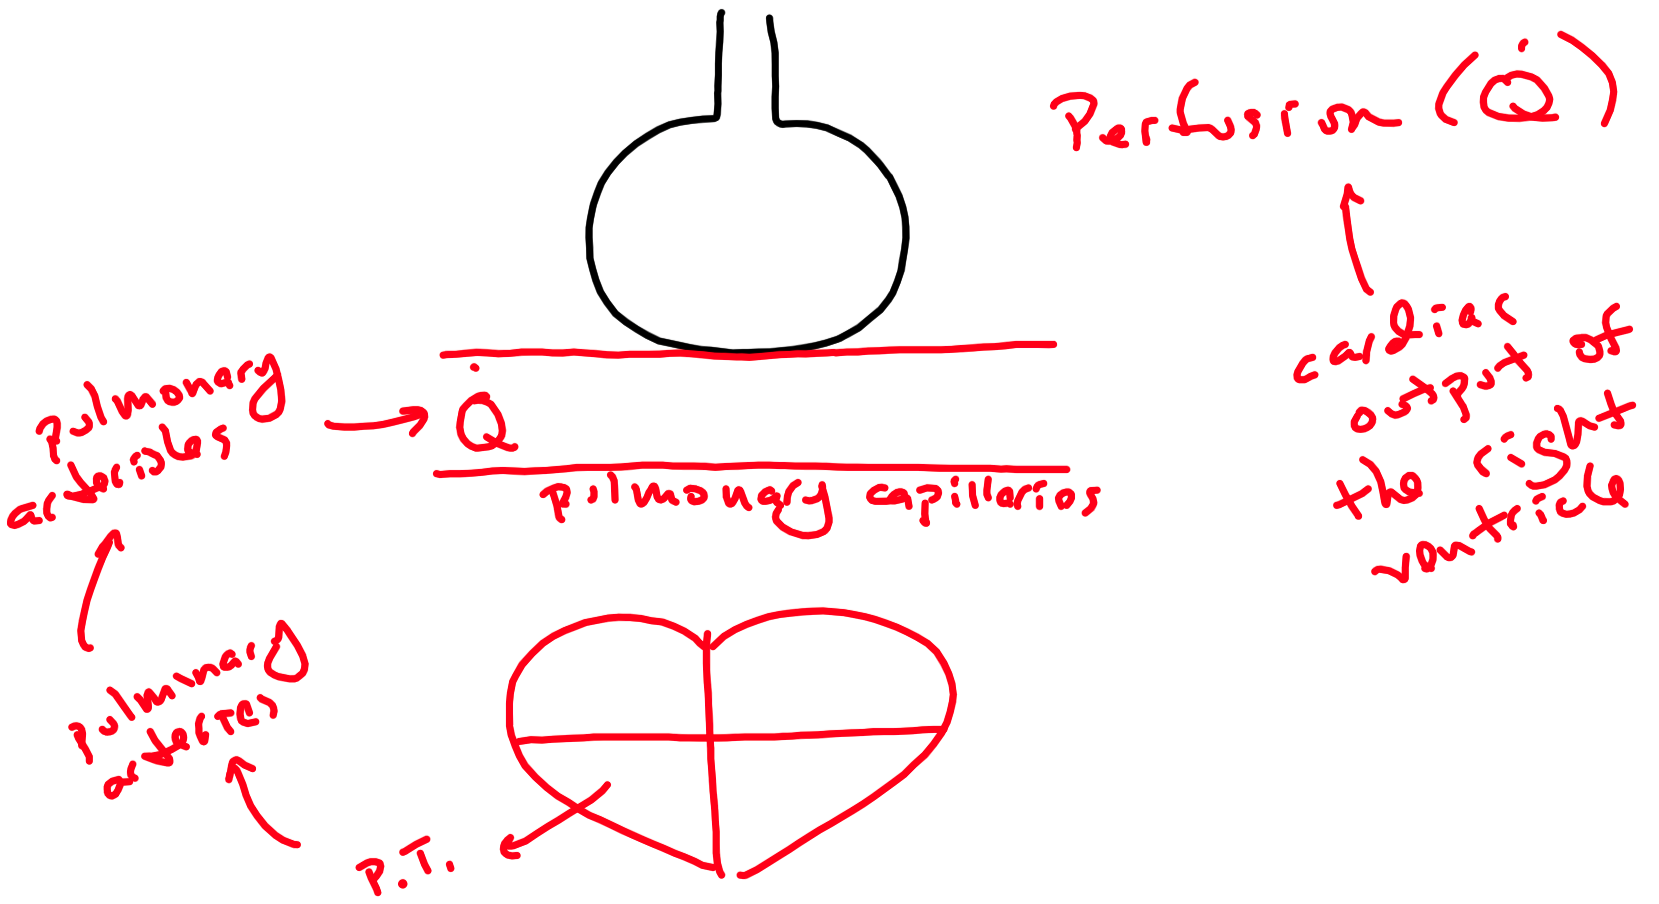 Perfusion (Q̇)
cardiac
output of
the right
ventricle
pulmonary
arterioles
Q̇
pulmonary capillaries
pulminary
arteries
P.T.